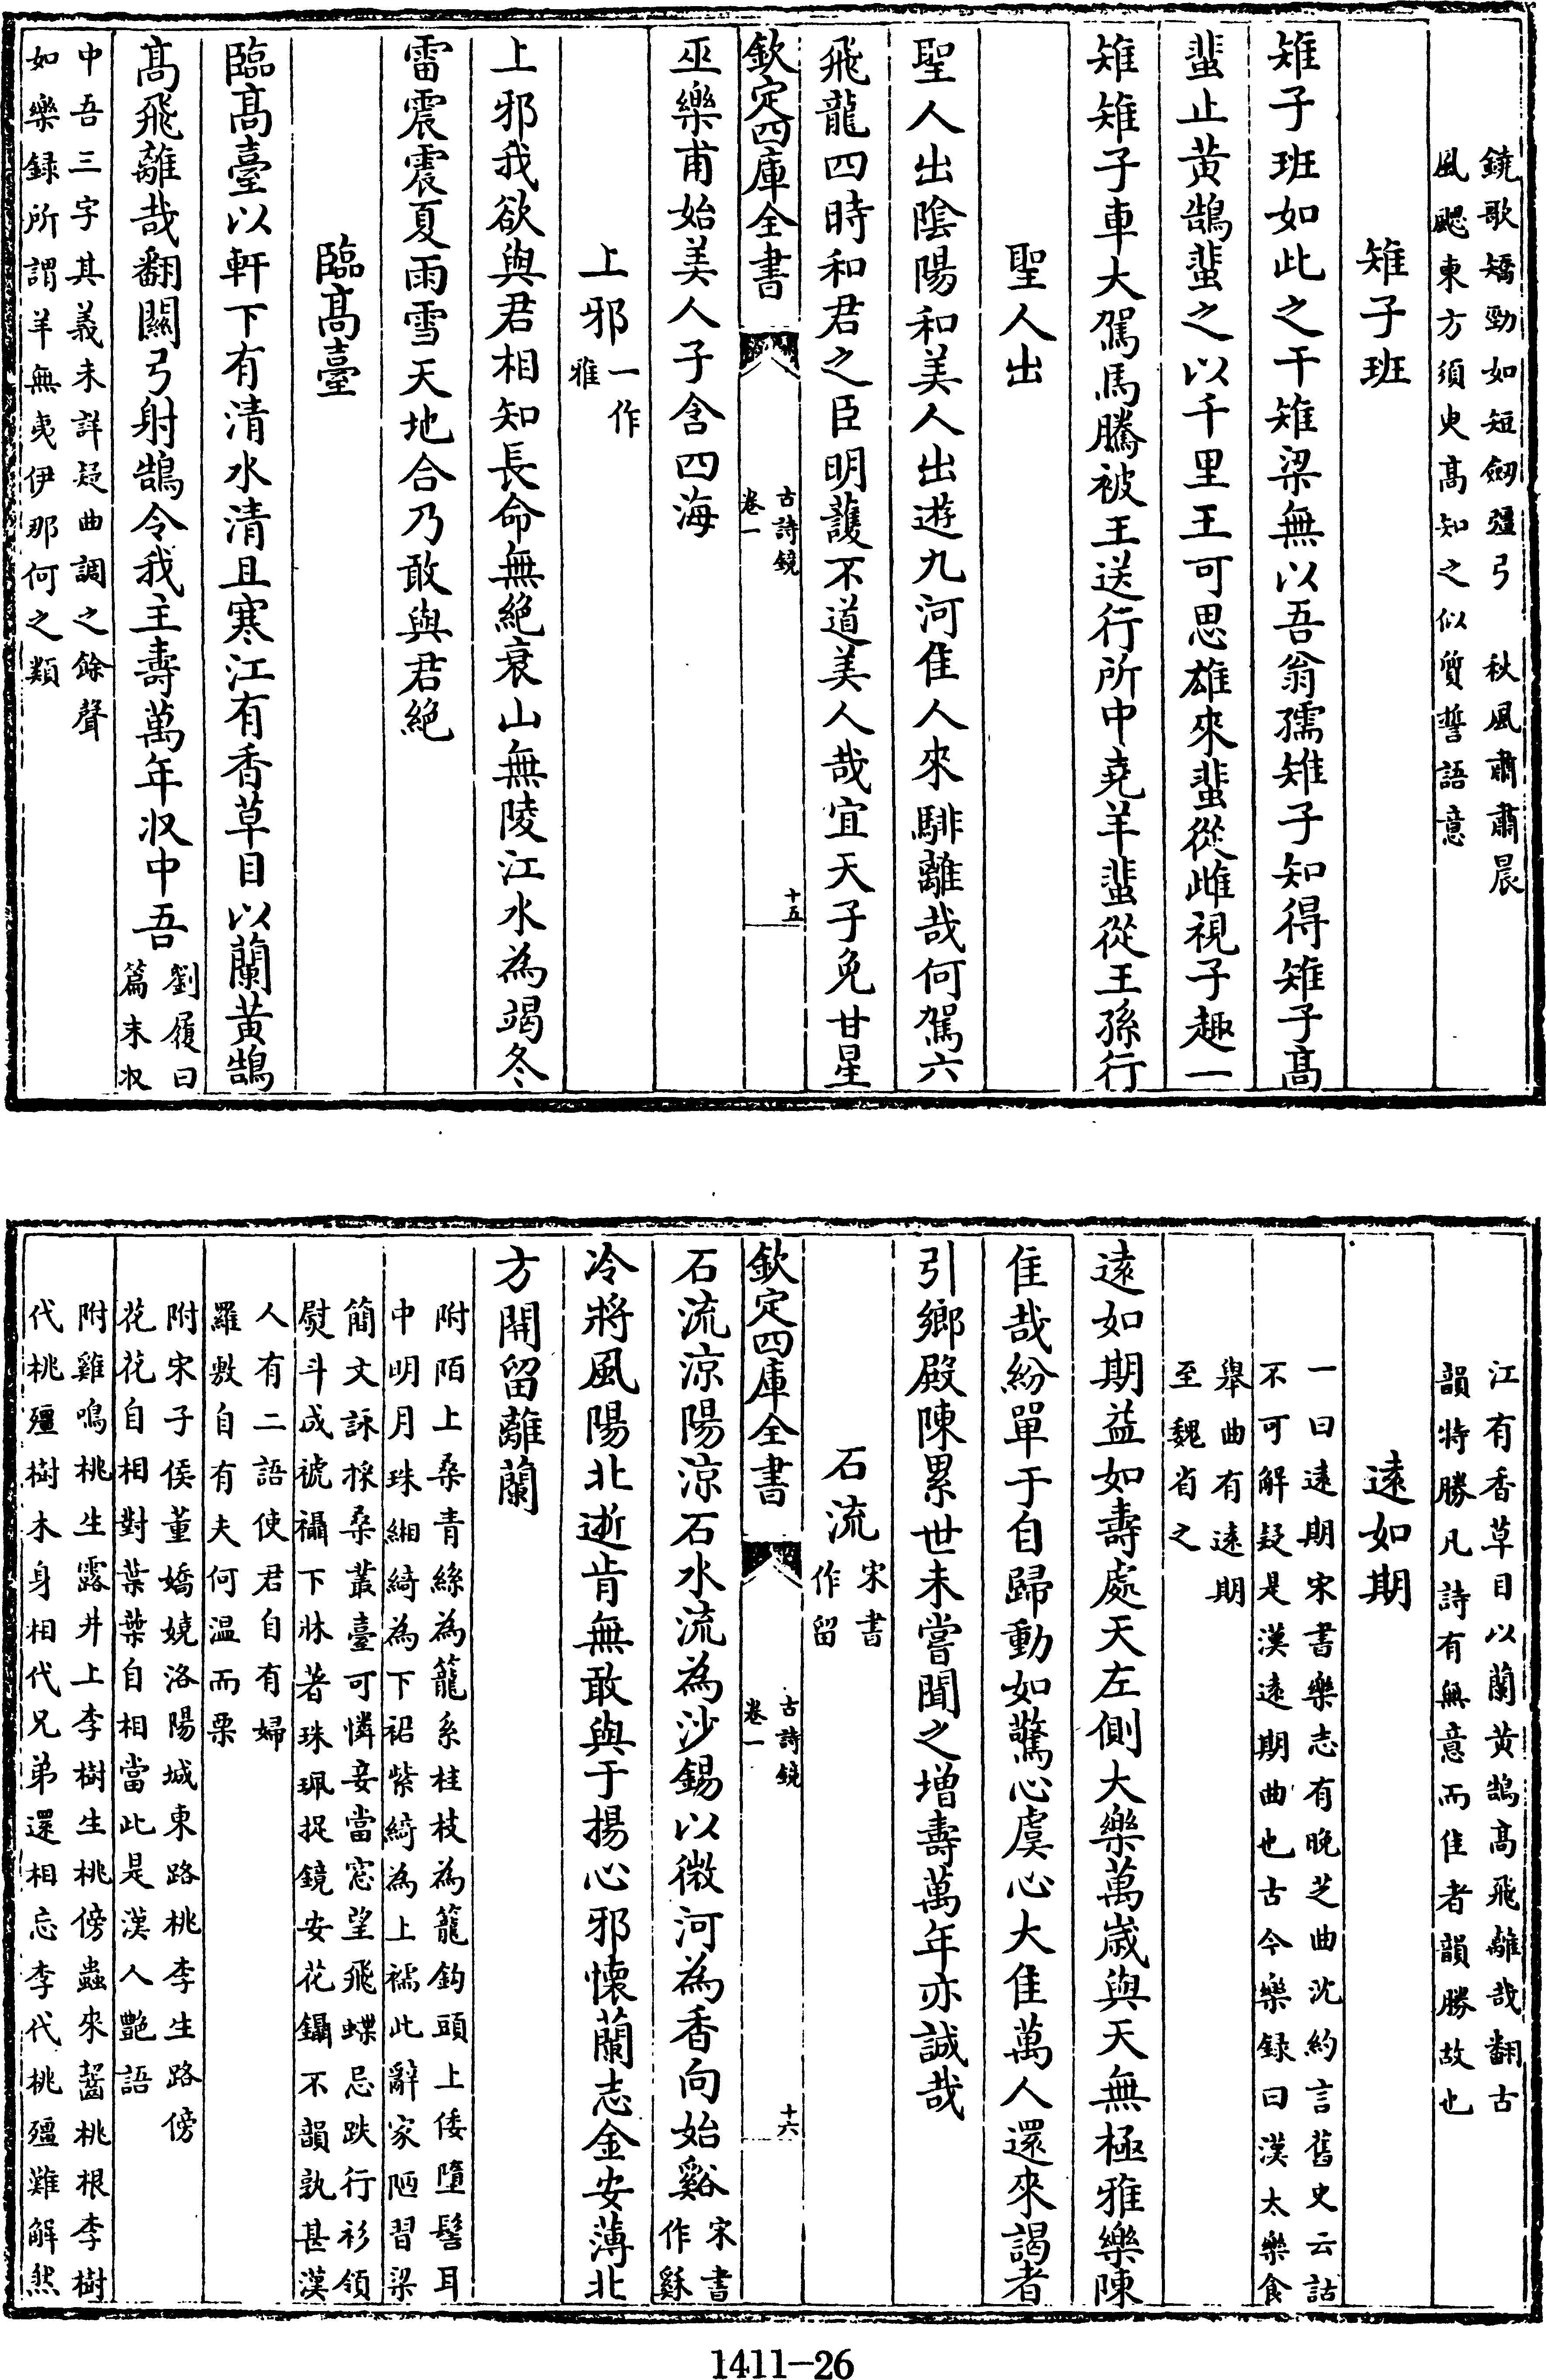 鐃歌矯勁如短劒彊弓　秋風肅肅晨
風颸東方須臾髙知之似質誓語意
雉子班
雉子班如此之干雉梁無以吾翁孺雉子知得雉子髙
蜚止黄鵠蜚之以千里王可思雄來蜚從雌視子趣一
雉雉子車大駕馬騰被王送行所中堯羊蜚從王孫行
聖人出
聖人出隂陽和美人出遊九河隹人來騑離哉何駕六
飛龍四時和君之臣明護不道美人哉宜天子免甘星
欽定四庫全書
古詩鏡
卷一
十五
巫樂甫始美人子含四海
上邪一作
雅
上邪我欲與君相知長命無絶衰山無陵江水為竭冬
雷震震夏雨雪天地合乃敢與君絶
臨髙臺
臨髙臺以軒下有清水清且寒江有香草目以蘭黄鵠
髙飛離哉翻關弓射鵠令我主壽萬年収中吾劉履曰
篇末收
中吾三字其義未詳疑曲調之餘聲
如樂録所謂羊無夷伊那何之類
江有香草目以蘭黄鵠髙飛離哉翻古
韻特勝凡詩有無意而佳者韻勝故也
逺如期
一曰逺期宋書樂志有晚芝曲沈約言舊史云詁
不可解疑是漢逺期曲也古今樂録曰漢太樂食
舉曲有逺期
至魏省之
逺如期益如壽處天左側大樂萬嵗與天無極雅樂陳
佳哉紛單于自歸動如驚心虞心大佳萬人還來謁者
引鄉殿陳累世未嘗聞之増壽萬年亦誠哉
石流宋書
作留
欽定四庫全書
古詩鏡
卷一
十六
石流凉陽凉石水流為沙錫以微河為香向始谿宋書
作繇
冷將風陽北逝肯無敢與于揚心邪懐蘭志金安薄北
方開留離蘭
附陌上桑青絲為籠系桂枝為籠鈎頭上倭墮髻耳
中明月珠緗綺為下裙紫綺為上襦此辭家陋習梁
簡文詠採桑叢臺可憐妾當窓望飛蝶忌趺行衫領
熨斗成褫襵下牀著珠珮捉鏡安花鑷不韻孰甚漢
人有二語使君自有婦
羅敷自有夫何温而栗
附宋子侯董嬌嬈洛陽城東路桃李生路傍
花花自相對葉葉自相當此是漢人艷語
附雞鳴桃生露井上李樹生桃傍蟲來齧桃根李樹
代桃殭樹木身相代兄弟還相忘李代桃殭難解然
1411-26